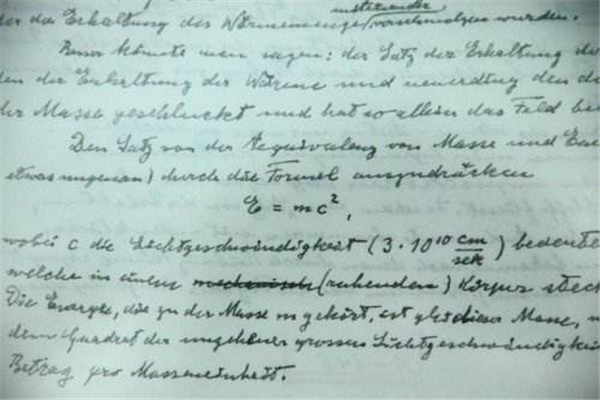 miteinander
der das Erhaltung des Wärmemenge verschmolzen wurden.
Besser könnte man sagen: der Satz der Erhaltung de
den der Erhaltung der Wärme und neuerding den de
der Masse geschluckt und hat so allein das Feld be
Den Satz von der Aequivalenz von Masse und Ene
etwas ungenau) durch die Formel auszudrücken
E = mc²,
wobei c die Lichtgeschwindigkeit (3 · 10¹⁰ cm/sek) bedeute
welche in einem (ruhenden) Körper steck
Die Energie, die zu der Masse m gehört, ist gleich dieser Masse, m
dem Quadrat der ungeheuer grossen Lichtgeschwindigkei
Betrag pro Masseneinheit.